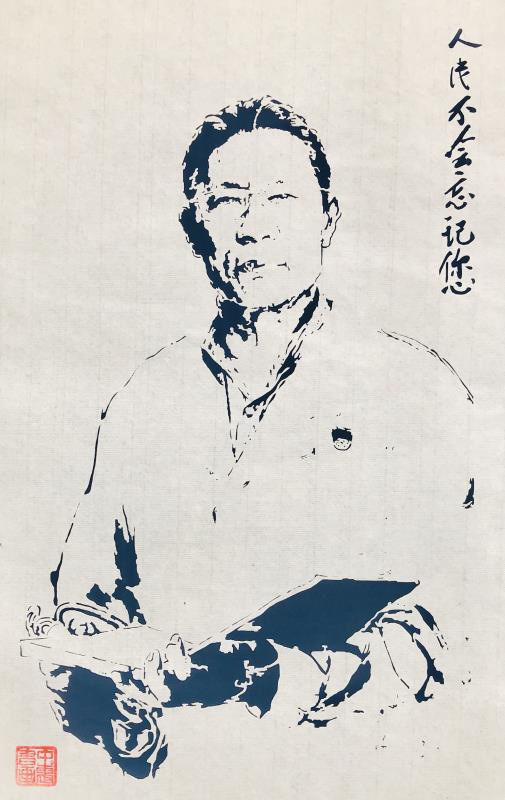 人民不会忘记您